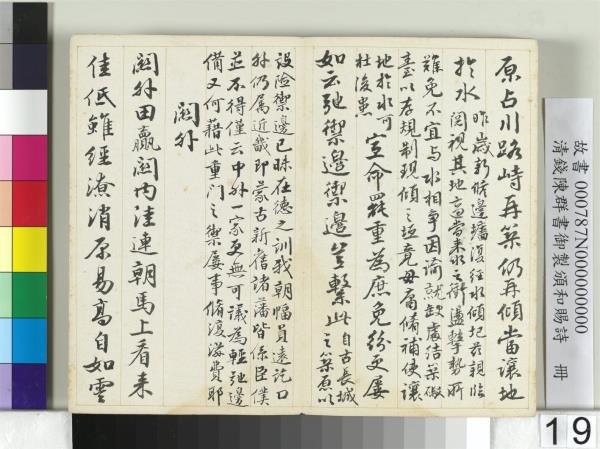 原占川路峙再築仍再傾當讓地
於水
昨歲新修邊墻復經水傾圮茲親臨
閱視其地適當來水之衝盪擊勢所
難免不宜與水相爭因諭就缺處結築假
臺以存規制現傾之垣竟毋庸脩補使讓
地於水可
杜後患
寔命罷重為庶免紛更屢
如云弛禦邊禦邊豈繫此
自古長城
之築原以
設險禦邊已昧在德之訓我朝幅員遠訖口
外仍屬近畿即蒙古新舊諸藩皆係臣僕
並不得僅云中外一家更無可議為輕弛邊
備又何藉此重門之禦屢事脩復滋費耶
關外
關外田贏關內洼連朝馬上看來
佳低雖經潦消原易高自如雲
故書 000787N000000000
清錢陳群書御製頒和賜詩 冊
19